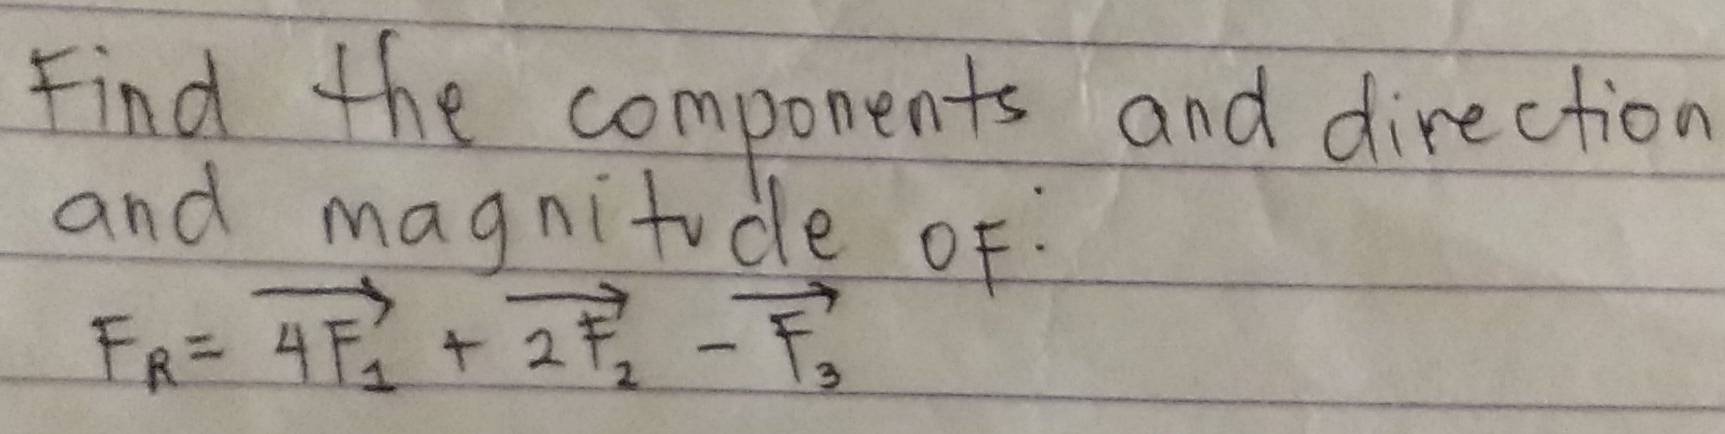 Find the components and direction
and magnitude of:
F_R = \overrightarrow{4F_1} + \overrightarrow{2F_2} - \overrightarrow{F_3}